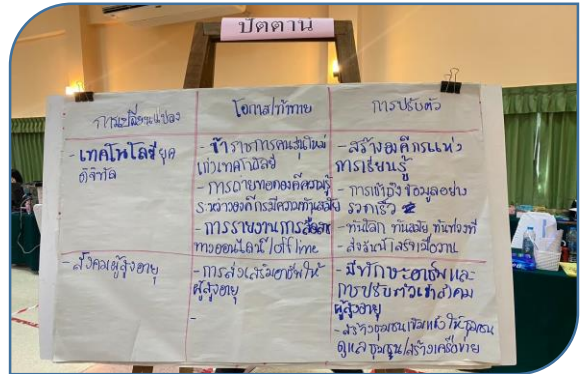 ปัตตานี
การเปลี่ยนแปลง
โอกาส/ท้าทาย
การปรับตัว
- เทคโนโลยียุค
ดิจิทัล
- ข้าราชการคนรุ่นใหม่
เก่งเทคโนโลยี
- การถ่ายทอดองค์ความรู้
ระหว่างองค์กรมีความทันสมัย
- การรายงานการสื่อสาร
ทางออนไลน์/offline
- สร้างองค์กรแห่ง
การเรียนรู้
- การเข้าถึงข้อมูลอย่าง
รวดเร็ว
- ทันโลก ทันสมัย ทันท่วงที
- สังคมผู้สูงอายุ
- การส่งเสริมอาชีพให้
ผู้สูงอายุ
-
- มีทักษะอาชีพและ
การปรับตัวเข้าสังคม
ผู้สูงอายุ
- สร้างชุมชนเข้มแข็งให้ชุมชน
ดูแลชุมชน/สร้างเครือข่าย